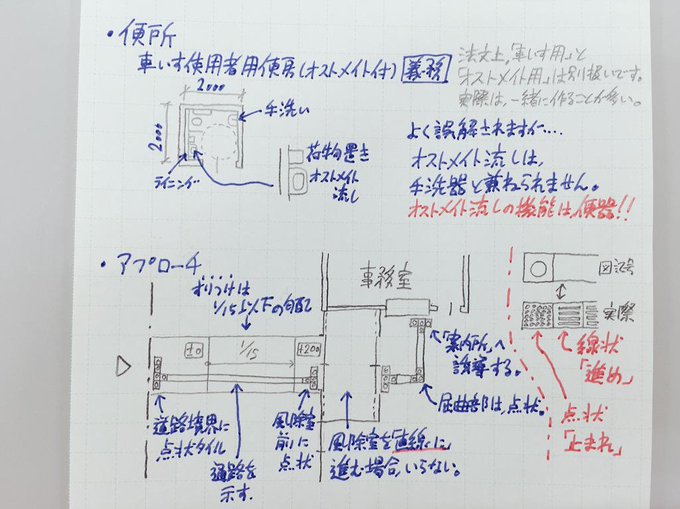 ・便所
車いす使用者用便房(オストメイト付) 義務
法文上,「車いす用」と
「オストメイト用」は別扱いです。
実際は,一緒に作ることが多い。
2000
2000
手洗い
ライニング
荷物置き
オストメイト
流し
よく誤解されますが....
オストメイト流しは、
手洗器と兼ねられません。
オストメイト流しの機能は便器!!
・アプローチ
すりつけは
1/15以下の勾配
事務室
±0
1/15
+200
道路境界に
点状タイル
通路を
示す.
風除室
前に
点状
風除室を「直線に」
進む場合,いらない。
「案内所」へ
誘導する。
屈曲部は,点状。
図記号
実際
線状
「進め」
点状
「止まれ」